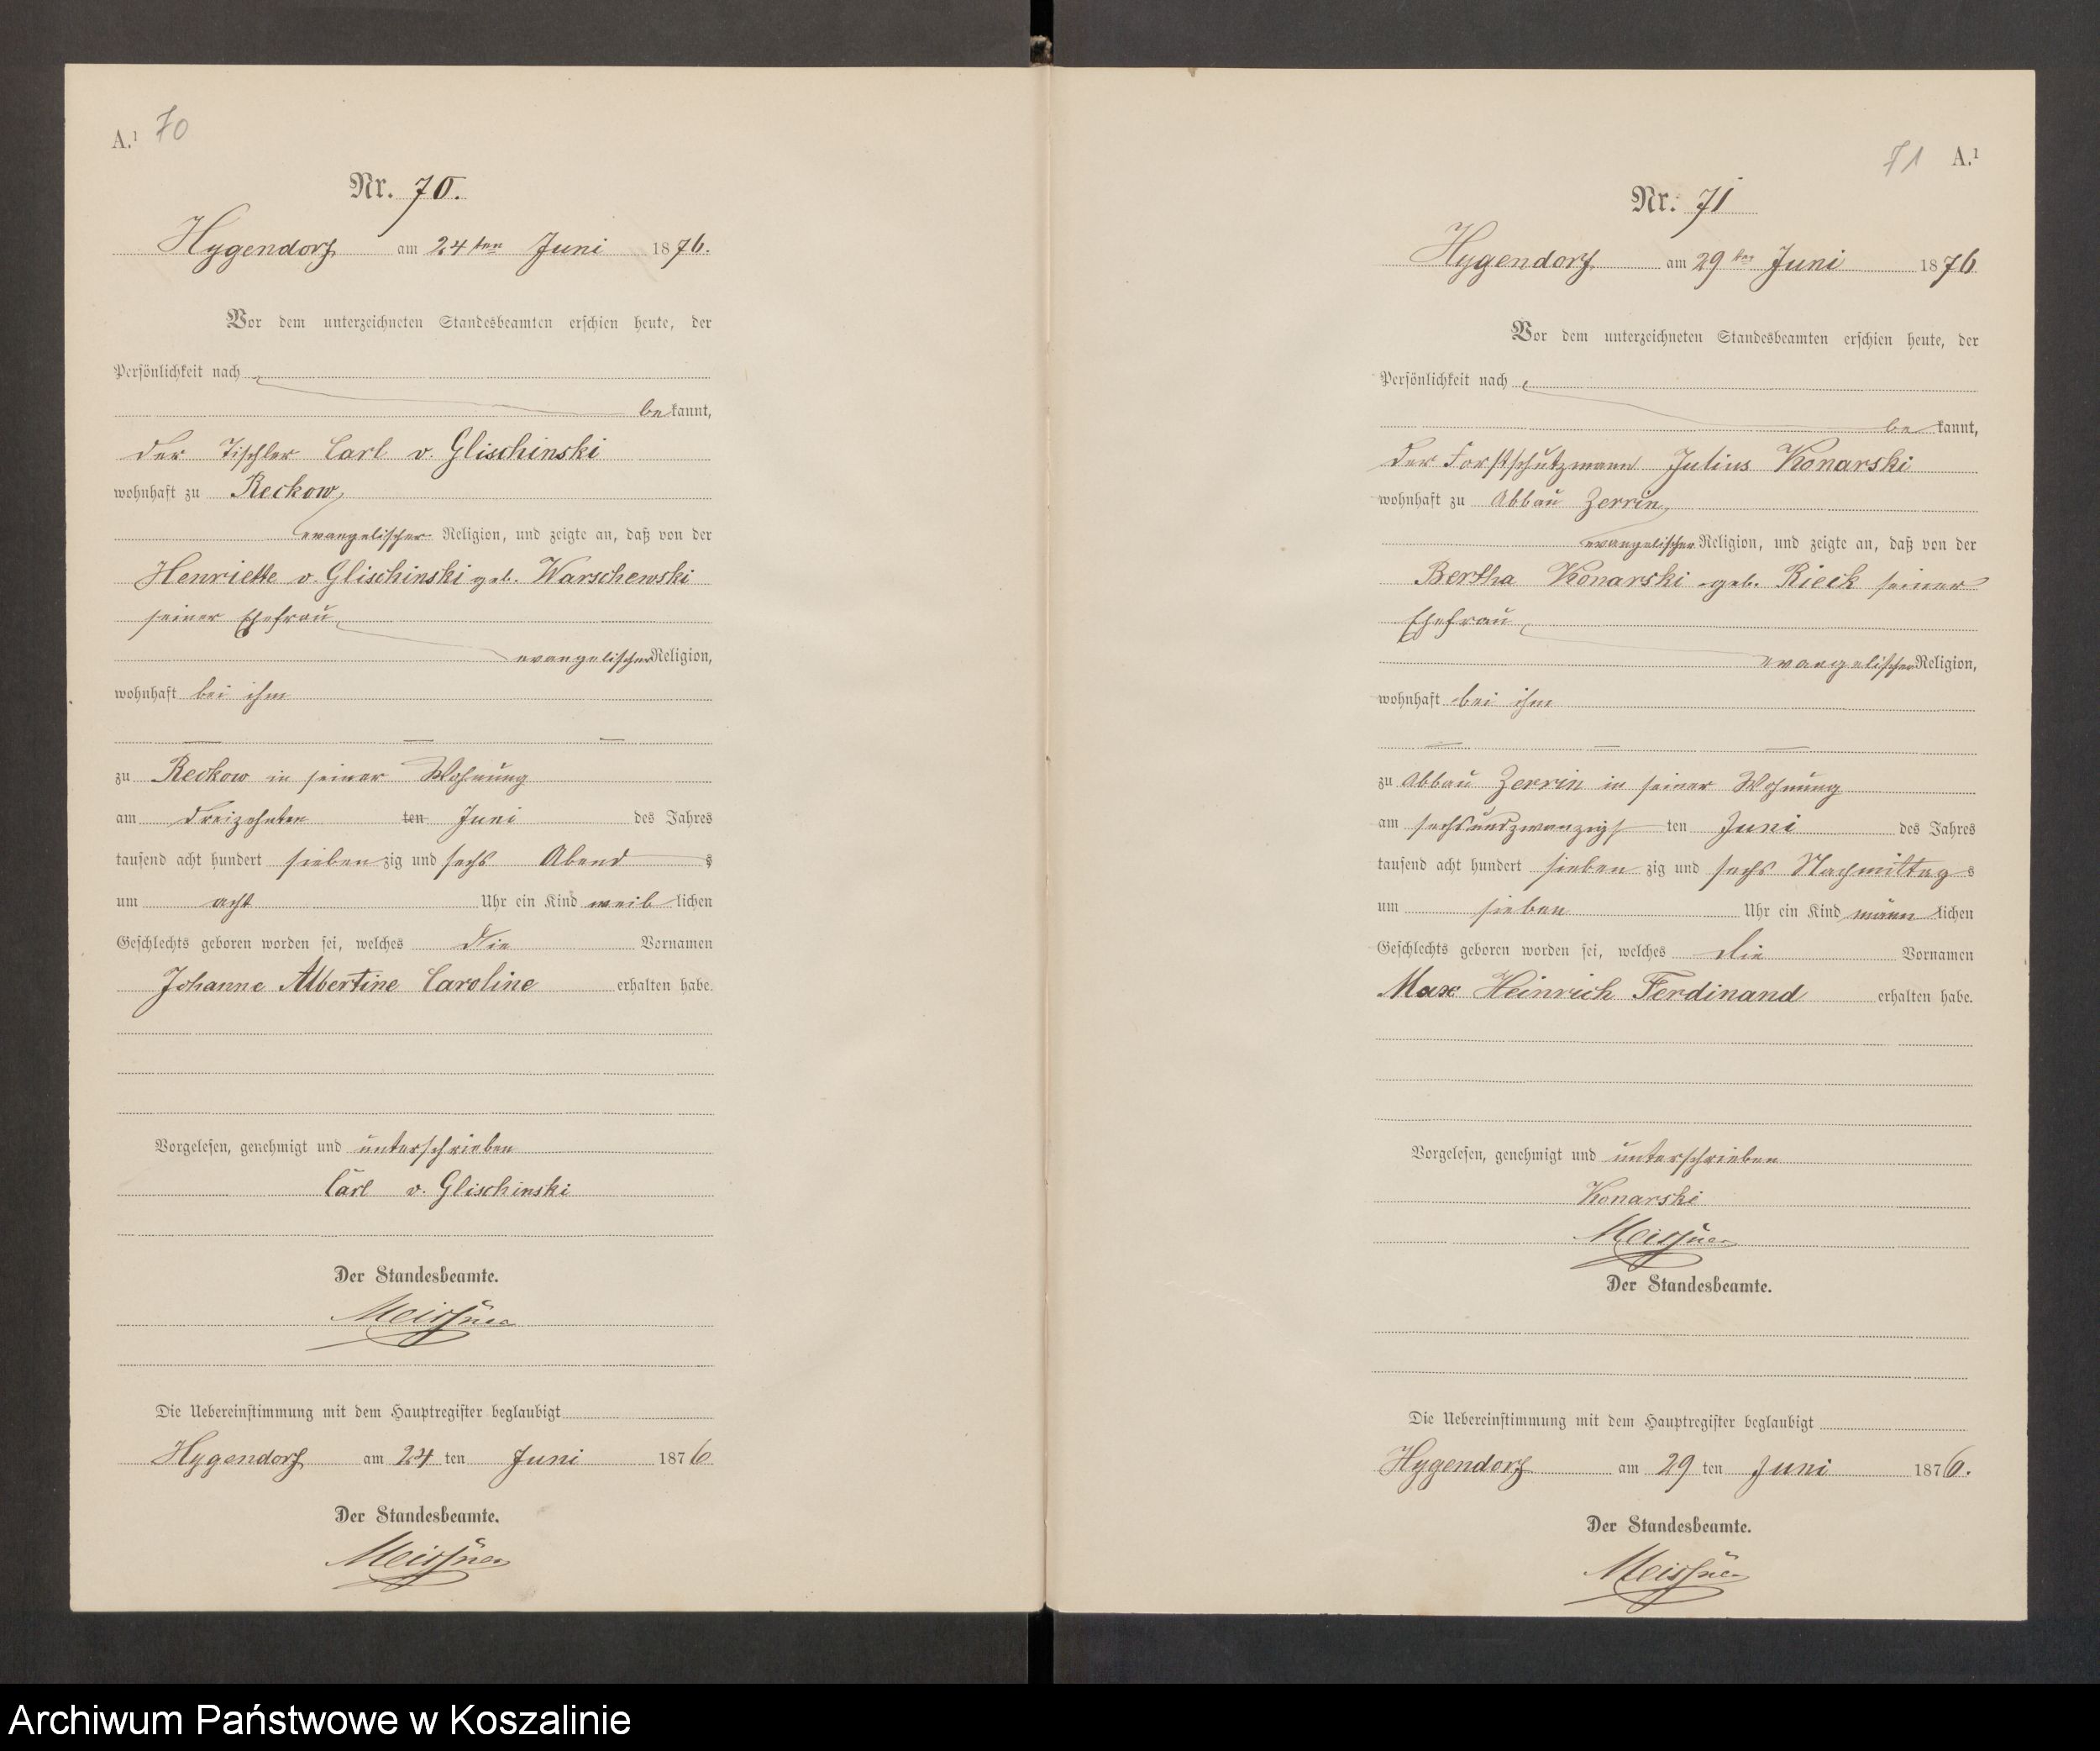 A.¹ 70
Nr. 70.
Hygendorf am 24ten Juni 1876.
Vor dem unterzeichneten Standesbeamten erschien heute, der
Persönlichkeit nach
bekannt,
der Tischler Carl v. Glischinski
wohnhaft zu Reckow,
evangelischer Religion, und zeigte an, daß von der
Henriette v. Glischinski geb. Warschewski
seiner Ehefrau
evangelischer Religion,
wohnhaft bei ihm
zu Reckow in seiner Wohnung
am dreizehnten ten Juni des Jahres
tausend acht hundert siebenzig und sechs Abends
um acht Uhr ein Kind weiblichen
Geschlechts geboren worden sei, welches die Vornamen
Johanne Albertine Caroline erhalten habe.
Vorgelesen, genehmigt und unterschrieben
Carl v. Glischinski
Der Standesbeamte.
Meissner
Die Uebereinstimmung mit dem Hauptregister beglaubigt
Hygendorf am 24 ten Juni 1876
Der Standesbeamte.
Meissner
71 A.¹
Nr. 71
Hygendorf am 29ten Juni 1876
Vor dem unterzeichneten Standesbeamten erschien heute, der
Persönlichkeit nach
bekannt,
der Forstschutzmann Julius Konarski
wohnhaft zu Abbau Zerrin,
evangelischer Religion, und zeigte an, daß von der
Bertha Konarski geb. Rieck seiner
Ehefrau
evangelischer Religion,
wohnhaft bei ihm
zu Abbau Zerrin in seiner Wohnung
am sechsundzwanzigsten Juni des Jahres
tausend acht hundert siebenzig und sechs Nachmittags
um sieben Uhr ein Kind männlichen
Geschlechts geboren worden sei, welches die Vornamen
Max Heinrich Ferdinand erhalten habe.
Vorgelesen, genehmigt und unterschrieben
Konarski
Meissner
Der Standesbeamte.
Die Uebereinstimmung mit dem Hauptregister beglaubigt
Hygendorf am 29 ten Juni 1876.
Der Standesbeamte.
Meissner
Archiwum Państwowe w Koszalinie